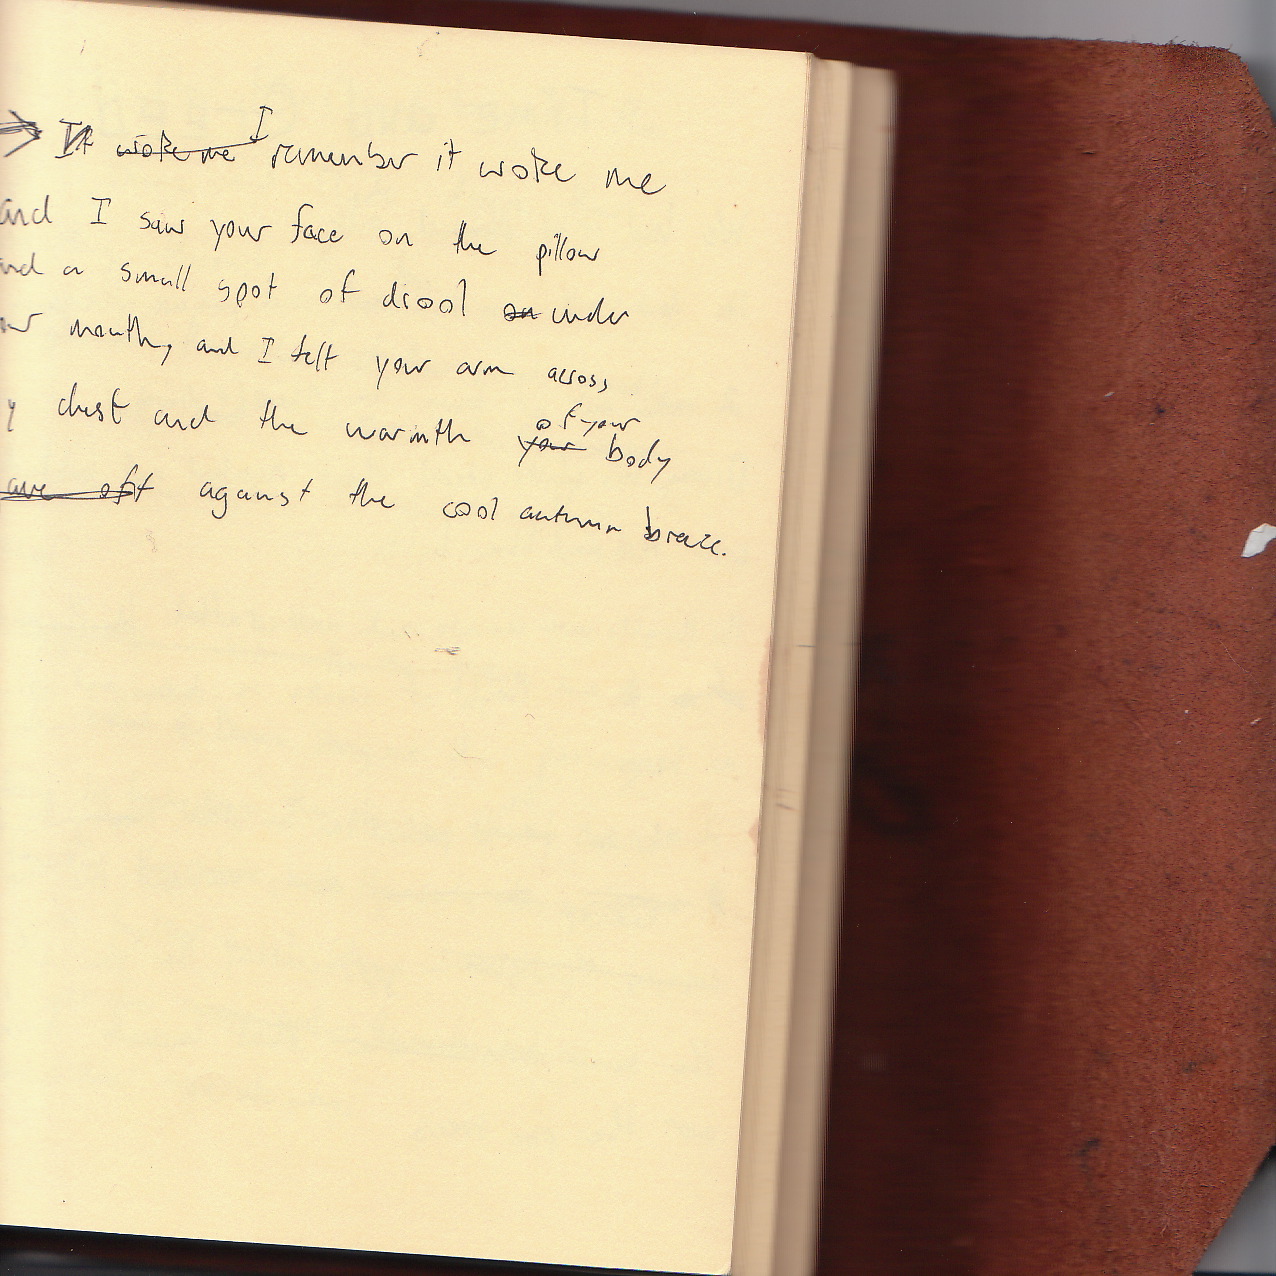 It woke me I remember it woke me
and I saw your face on the pillow
and a small spot of drool on under
mouth, and I felt your arm across
y chest and the warmth your of your body
against the cool autumn breeze.